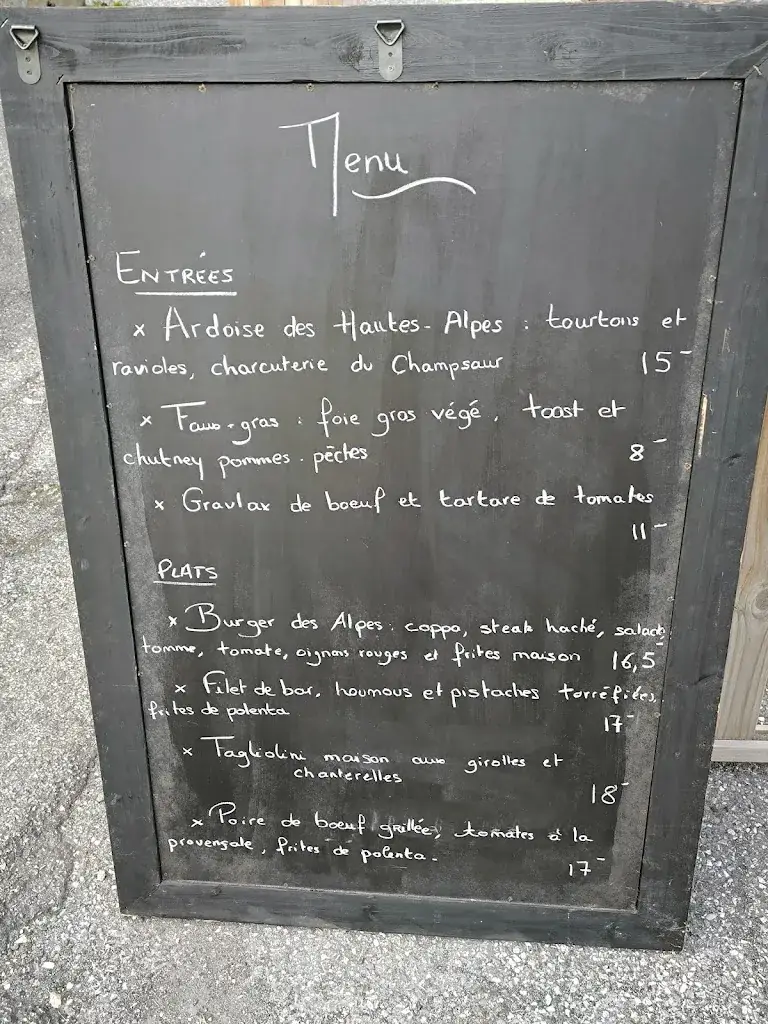 Menu
ENTRÉES
x Ardoise des Hautes-Alpes : tourtons et
ravioles, charcuterie du Champsaur 15-
x Faux-gras : foie gras végé, toast et
chutney pommes-pêches 8-
x Gravlax de boeuf et tartare de tomates
11-
PLATS
x Burger des Alpes : coppa, steak haché, salade,
tomme, tomate, oignons rouges et frites maison 16,5-
x Filet de bar, houmous et pistaches torréfiées,
frites de polenta 17-
x Tagliolini maison aux girolles et
chanterelles
18-
x Poire de boeuf grillée, tomates à la
provençale, frites de polenta. 17-